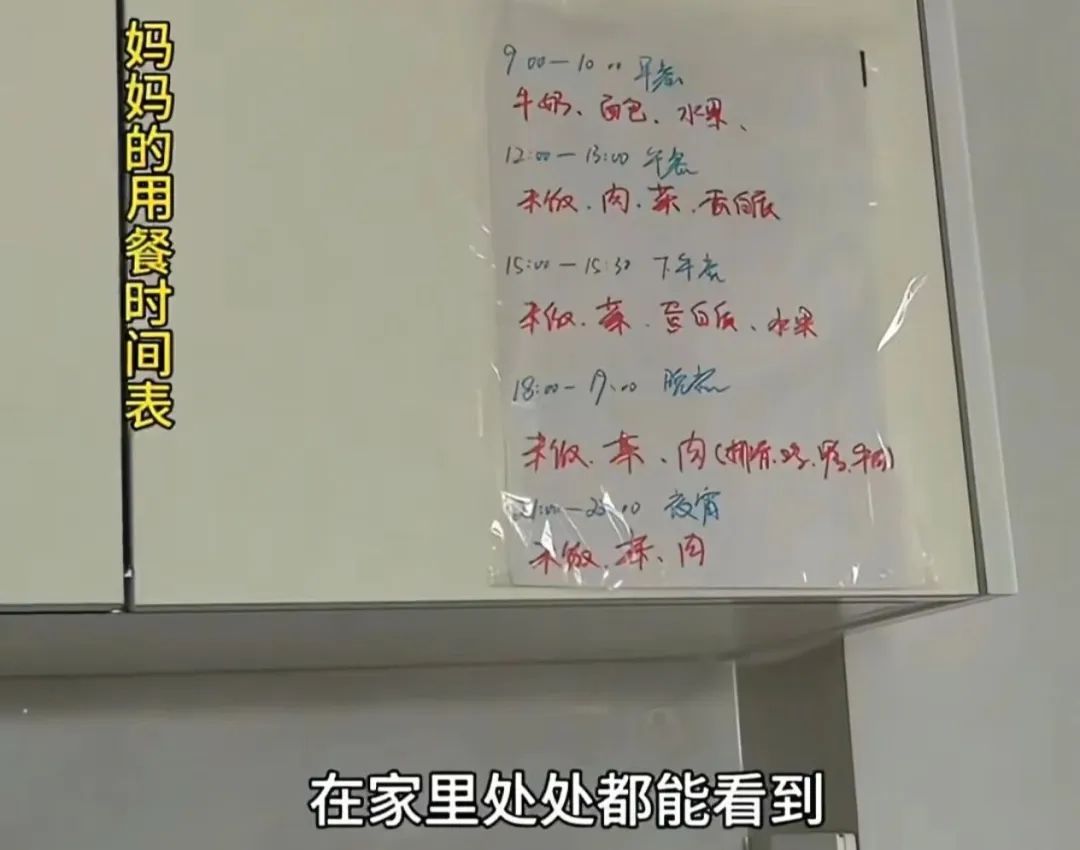 妈妈的用餐时间表
9:00—10:00 早餐
牛奶、面包、水果、
12:00—13:00 午餐
米饭、肉、菜、蛋白质
15:00—15:30 下午餐
米饭、菜、蛋白质、水果
18:00—19:00 晚餐
米饭、菜、肉(排骨、鸡、鸭、牛肉)
夜宵
米饭、菜、肉
在家里处处都能看到